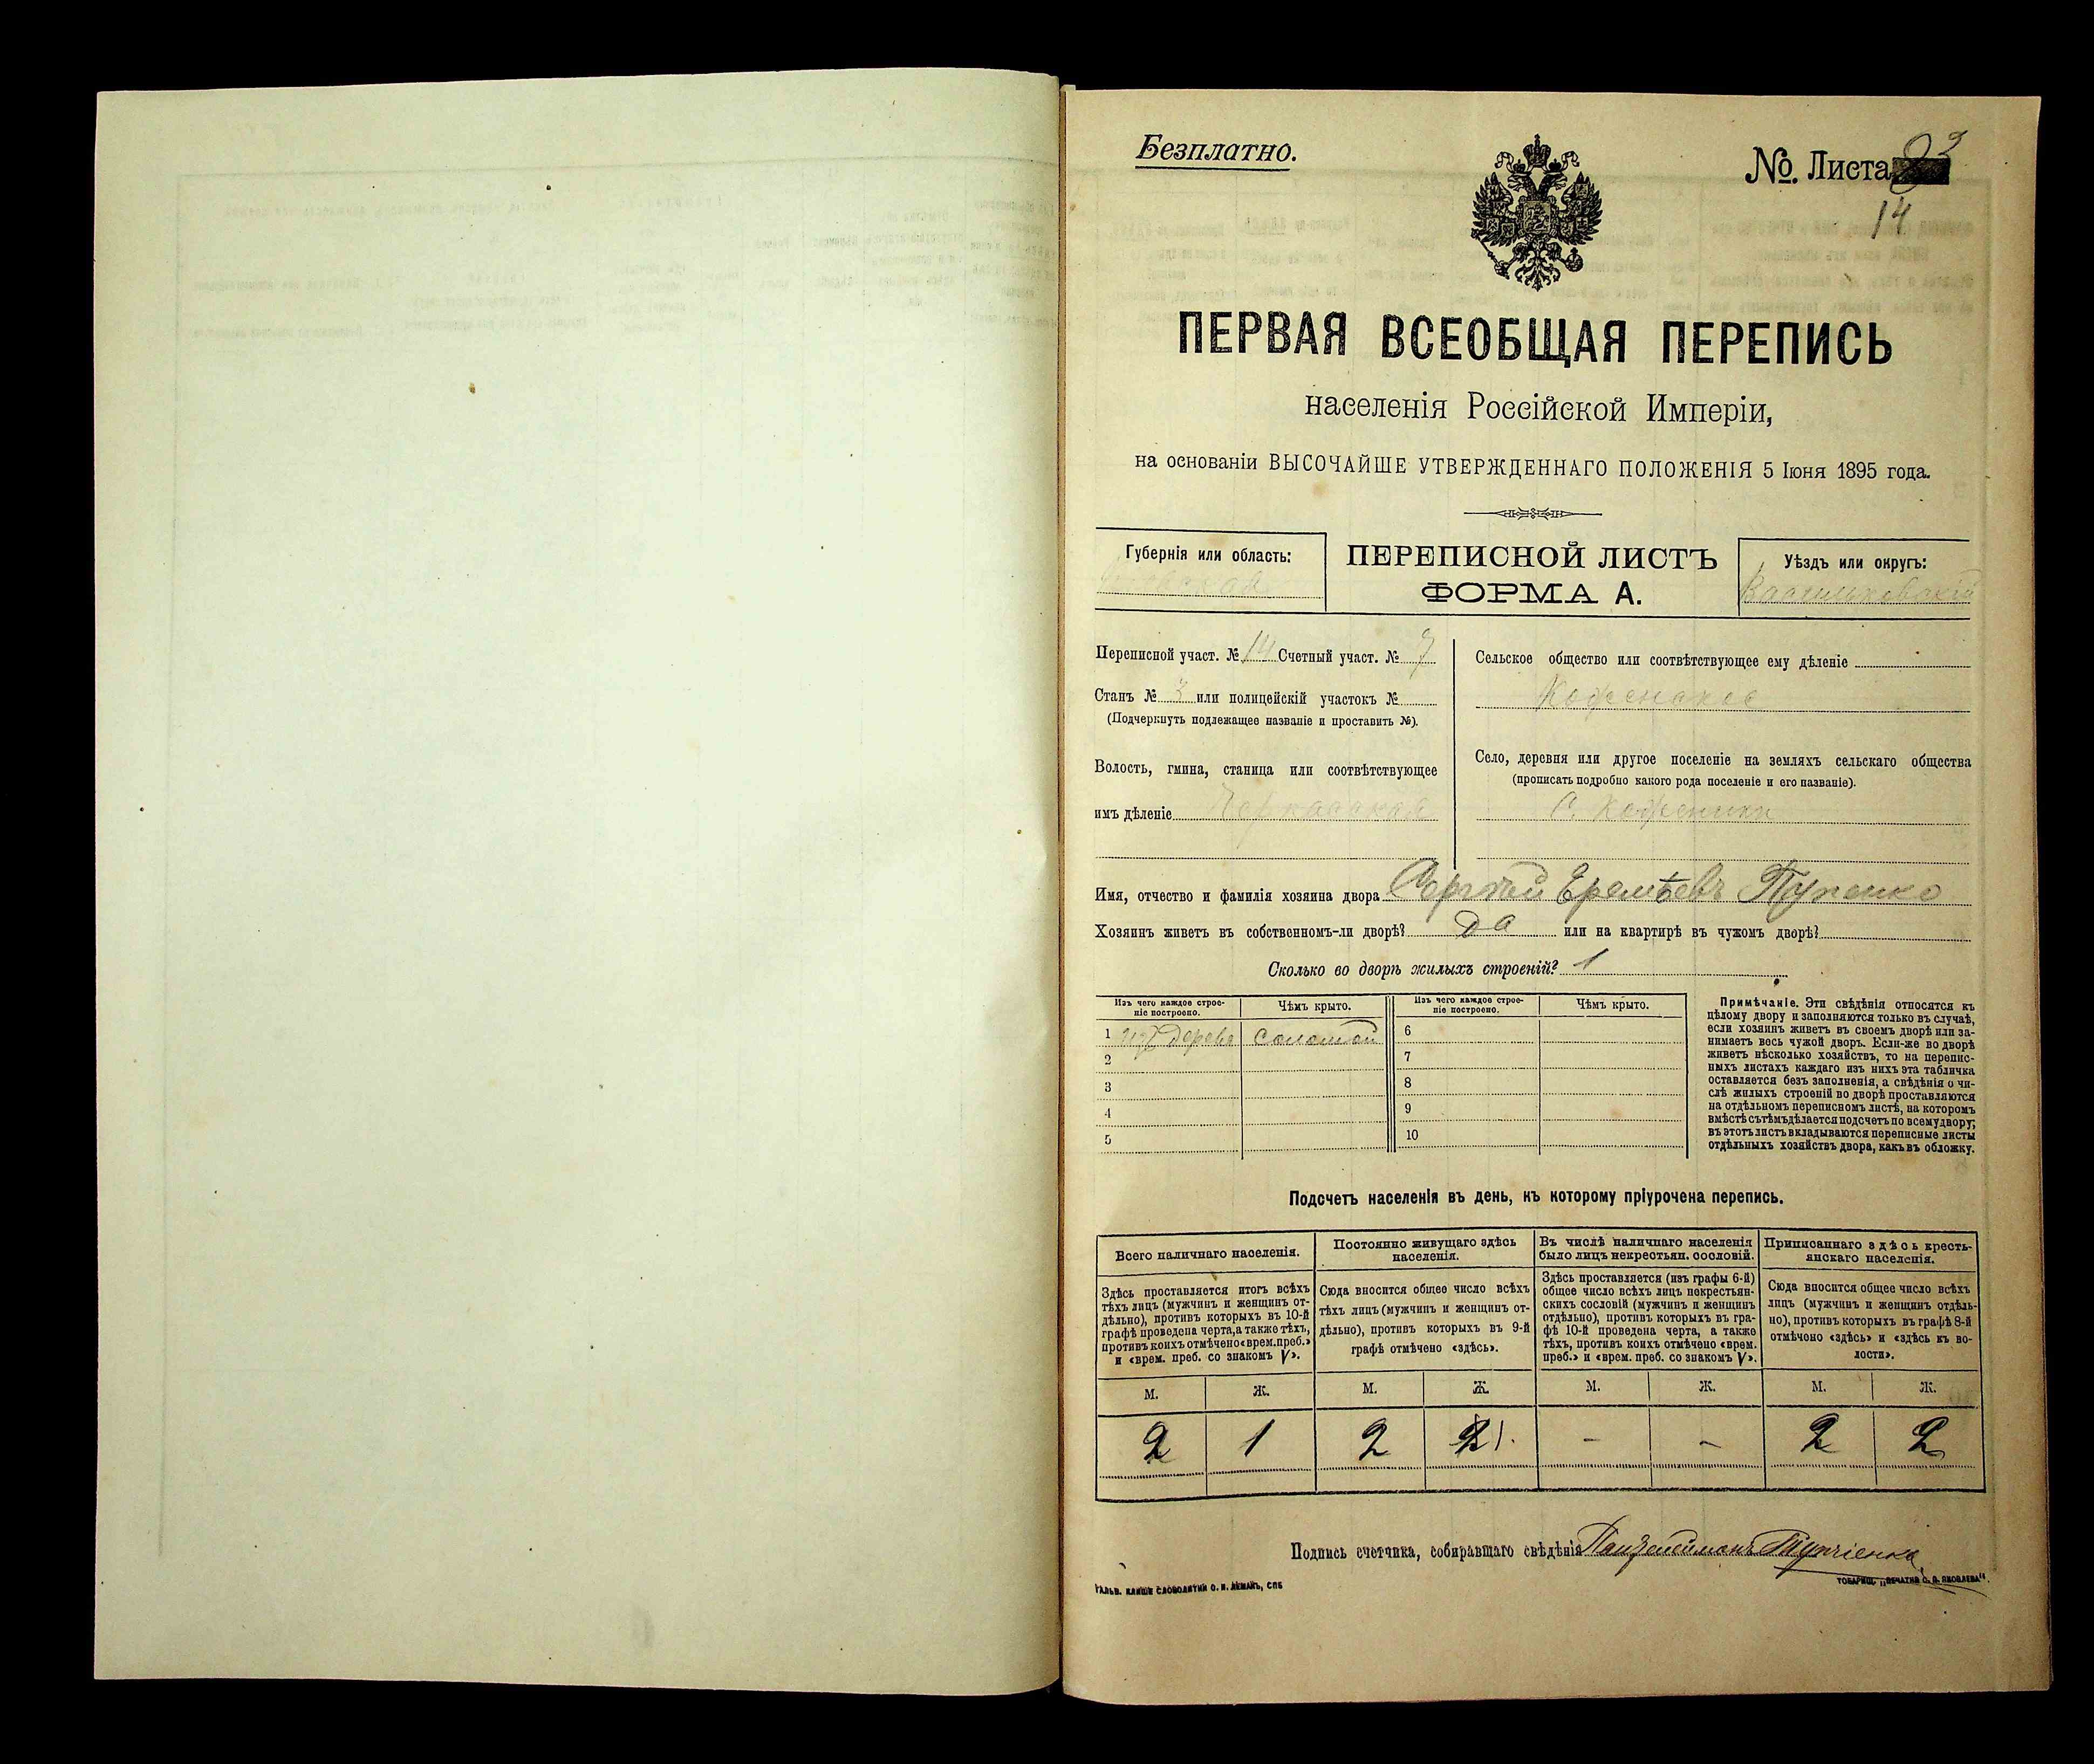 Безплатно.
№. Листа 93
14
ПЕРВАЯ ВСЕОБЩАЯ ПЕРЕПИСЬ
населенія Россійской Имперіи,
на основаніи ВЫСОЧАЙШЕ УТВЕРЖДЕННАГО ПОЛОЖЕНІЯ 5 Іюня 1895 года.
Губернія или область:
ПЕРЕПИСНОЙ ЛИСТЪ
ФОРМА А.
Уѣздъ или округъ:
Васильковскій
Переписной участ. № 14 Счетный участ. № 7
Станъ № 3 или полицейскій участокъ №
(Подчеркнуть подлежащее названіе и проставить №).
Волость, гмина, станица или соотвѣтствующее
имъ дѣленіе
Сельское общество или соотвѣтствующее ему дѣленіе
Село, деревня или другое поселеніе на земляхъ сельскаго общества
(прописать подробно какого рода поселеніе и его названіе).
Имя, отчество и фамилія хозяина двора Сергѣй Еремѣевъ
Хозяинъ живетъ въ собственномъ-ли дворѣ? Да или на квартирѣ въ чужомъ дворѣ?
Сколько во дворѣ жилыхъ строеній? 1
Изъ чего каждое строе-
ніе построено.
Чѣмъ крыто.
Изъ чего каждое строе-
ніе построено.
Чѣмъ крыто.
1 изъ дерева соломой
2
3
4
5
6
7
8
9
10
Примѣчаніе. Эти свѣдѣнія относятся къ
цѣлому двору и заполняются только въ случаѣ,
если хозяинъ живетъ въ своемъ дворѣ или за-
нимаетъ весь чужой дворъ. Если-же во дворѣ
живетъ нѣсколько хозяйствъ, то на перепис-
ныхъ листахъ каждаго изъ нихъ эта табличка
оставляется безъ заполненія, а свѣдѣнія о чи-
слѣ жилыхъ строеній во дворѣ проставляются
на отдѣльномъ переписномъ листѣ, на которомъ
вмѣстѣ съ тѣмъ дѣлается подсчетъ по всему двору;
въ этотъ листъ вкладываются переписные листы
отдѣльныхъ хозяйствъ двора, какъ въ обложку.
Подсчетъ населенія въ день, къ которому пріурочена перепись.
Всего наличнаго населенія.
Постоянно живущаго здѣсь
населенія.
Въ числѣ наличнаго населенія
было лицъ некрестьян. сословій.
Приписаннаго здѣсь кресть-
янскаго населенія.
Здѣсь проставляется итогъ всѣхъ
тѣхъ лицъ (мужчинъ и женщинъ от-
дѣльно), противъ которыхъ въ 10-й
графѣ проведена черта, а также тѣхъ,
противъ коихъ отмѣчено «врем. преб.»
и «врем. преб. со знакомъ V».
Сюда вносится общее число всѣхъ
тѣхъ лицъ (мужчинъ и женщинъ от-
дѣльно), противъ которыхъ въ 9-й
графѣ отмѣчено «здѣсь».
Здѣсь проставляется (изъ графы 6-й)
общее число всѣхъ лицъ некрестьян-
скихъ сословій (мужчинъ и женщинъ
отдѣльно), противъ которыхъ въ гра-
фѣ 10-й проведена черта, а также
тѣхъ, противъ коихъ отмѣчено «врем.
преб.» и «врем. преб. со знакомъ V».
Сюда вносится общее число всѣхъ
лицъ (мужчинъ и женщинъ отдѣль-
но), противъ которыхъ въ графѣ 8-й
отмѣчено «здѣсь» и «здѣсь къ во-
лости».
М. Ж. М. Ж. М. Ж. М. Ж.
2 1 2 1. - - 2 2
Подпись счетчика, собиравшаго свѣдѣнія Пантелеймонъ
ГАЛЬВ. КЛИШЕ СЛОВОЛИТНИ О. И. ЛЕМАНЪ, СПБ
ТОВАРИЩ. „ПЕЧАТНЯ С. П. ЯКОВЛЕВА".